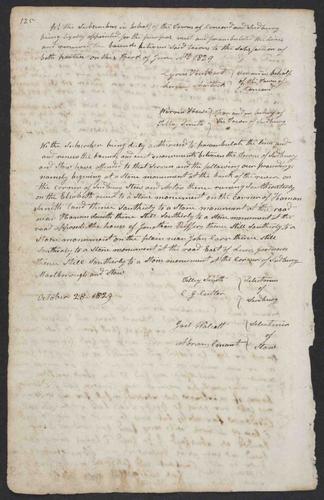 125
We the Subscribers in behalf of the Towns of Concord and Sudbury
being legally appointed for the purpose, met and perambulated the lines
and renewed the bounds between said towns to the satisfaction of
both parties on the third of June AD 1829
Cyrus Hubbard
Committee in behalf
of the Town of
Concord
for and in behalf of
the Town of Sudbury
Tilley Smith
We the Subscribers being duly authorised to perambulate the line and
and renew the bounds and erect monuments between the Towns of Sudbury
and Stow have attended to that duty in the following manner
namely beginning at a Stone monument at the bank of the river on
the corner of Sudbury Stow and thence running Southwesterly
to a Stone monument on the
Smith's land thence Southerly to a Stone monument at the road
near Smith's thence Still Southerly to a stone monument at the
road the house of Jonathan thence Still Southerly to a
Stone monument on the plain near John thence Still
Southerly to a Stone monument at the road East of
thence Still Southerly to a Stone monument at the corner of Sudbury
Marlborough and Stow
October 28. 1829
Tilley Smith
Selectmen
of
Sudbury
C G Cutler
Selectmen
of
Stow
Abram Conant